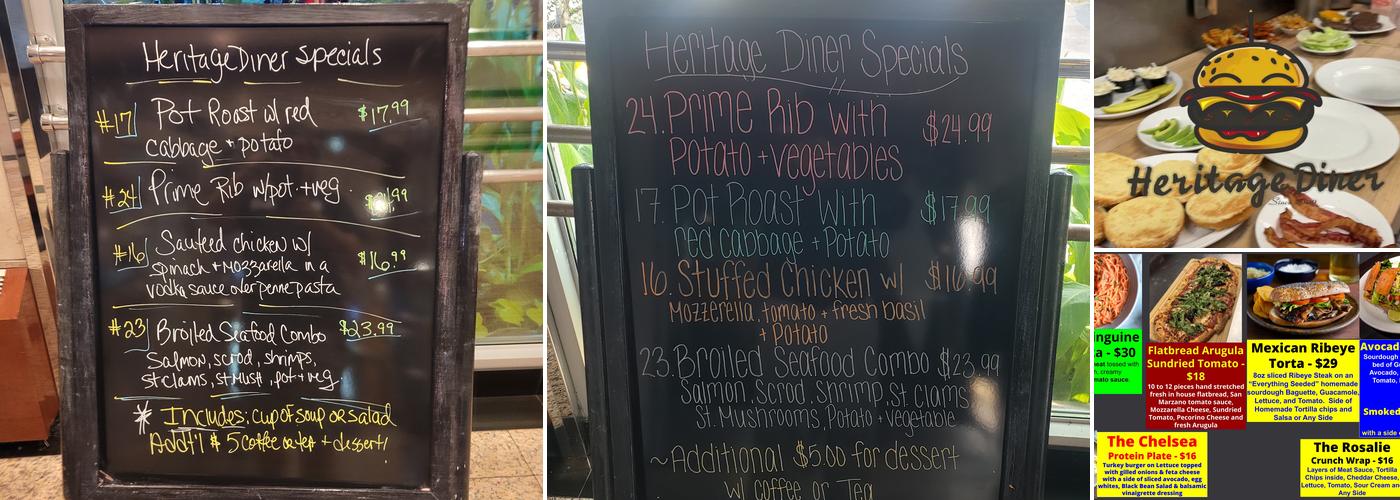 Heritage Diner Specials
#17 Pot Roast w/ red $17.99
cabbage + potato
#24 Prime Rib w/pot. + veg.
#16 Sauteed chicken w/ $16.99
spinach + Mozzarella in a
vodka sauce over penne pasta
#23 Broiled Seafood Combo $23.99
Salmon, scrod, shrimps,
st clams, st Mush, pot + veg.
* Includes: cup of soup or salad
Addt'l $5 coffee or tea + dessert!
Heritage Diner Specials
24. Prime Rib with $24.99
Potato + vegetables
17. Pot Roast with $17.99
red cabbage + Potato
16. Stuffed Chicken w/ $16.99
Mozzerella, tomato + fresh basil
+ Potato
23. Broiled Seafood Combo $23.99
Salmon, Scrod, Shrimp, st clams
St. Mushrooms, Potato + vegetable
~Additional $5.00 for dessert
w/ coffee or Tea
Heritage Diner
nguine
a - $30
tossed with
, creamy
mato sauce.
Flatbread Arugula
Sundried Tomato -
$18
10 to 12 pieces hand stretched
fresh in house flatbread, San
Marzano tomato sauce,
Mozzarella Cheese, Sundried
Tomato, Pecorino Cheese and
fresh Arugula
Mexican Ribeye
Torta - $29
8oz sliced Ribeye Steak on an
"Everything Seeded" homemade
sourdough Baguette, Guacamole,
Lettuce, and Tomato. Side of
Homemade Tortilla chips and
Salsa or Any Side
Avocad
Sourdough
bed of G
Avocado,
Tomato,
Smoked
with a side
The Chelsea
Protein Plate - $16
Turkey burger on Lettuce topped
with gilled onions & feta cheese
with a side of sliced avocado, egg
whites, Black Bean Salad & balsamic
vinaigrette dressing
The Rosalie
Crunch Wrap - $16
Layers of Meat Sauce, Tortilla
Chips inside, Cheddar Cheese,
Lettuce, Tomato, Sour Cream and
Any Side